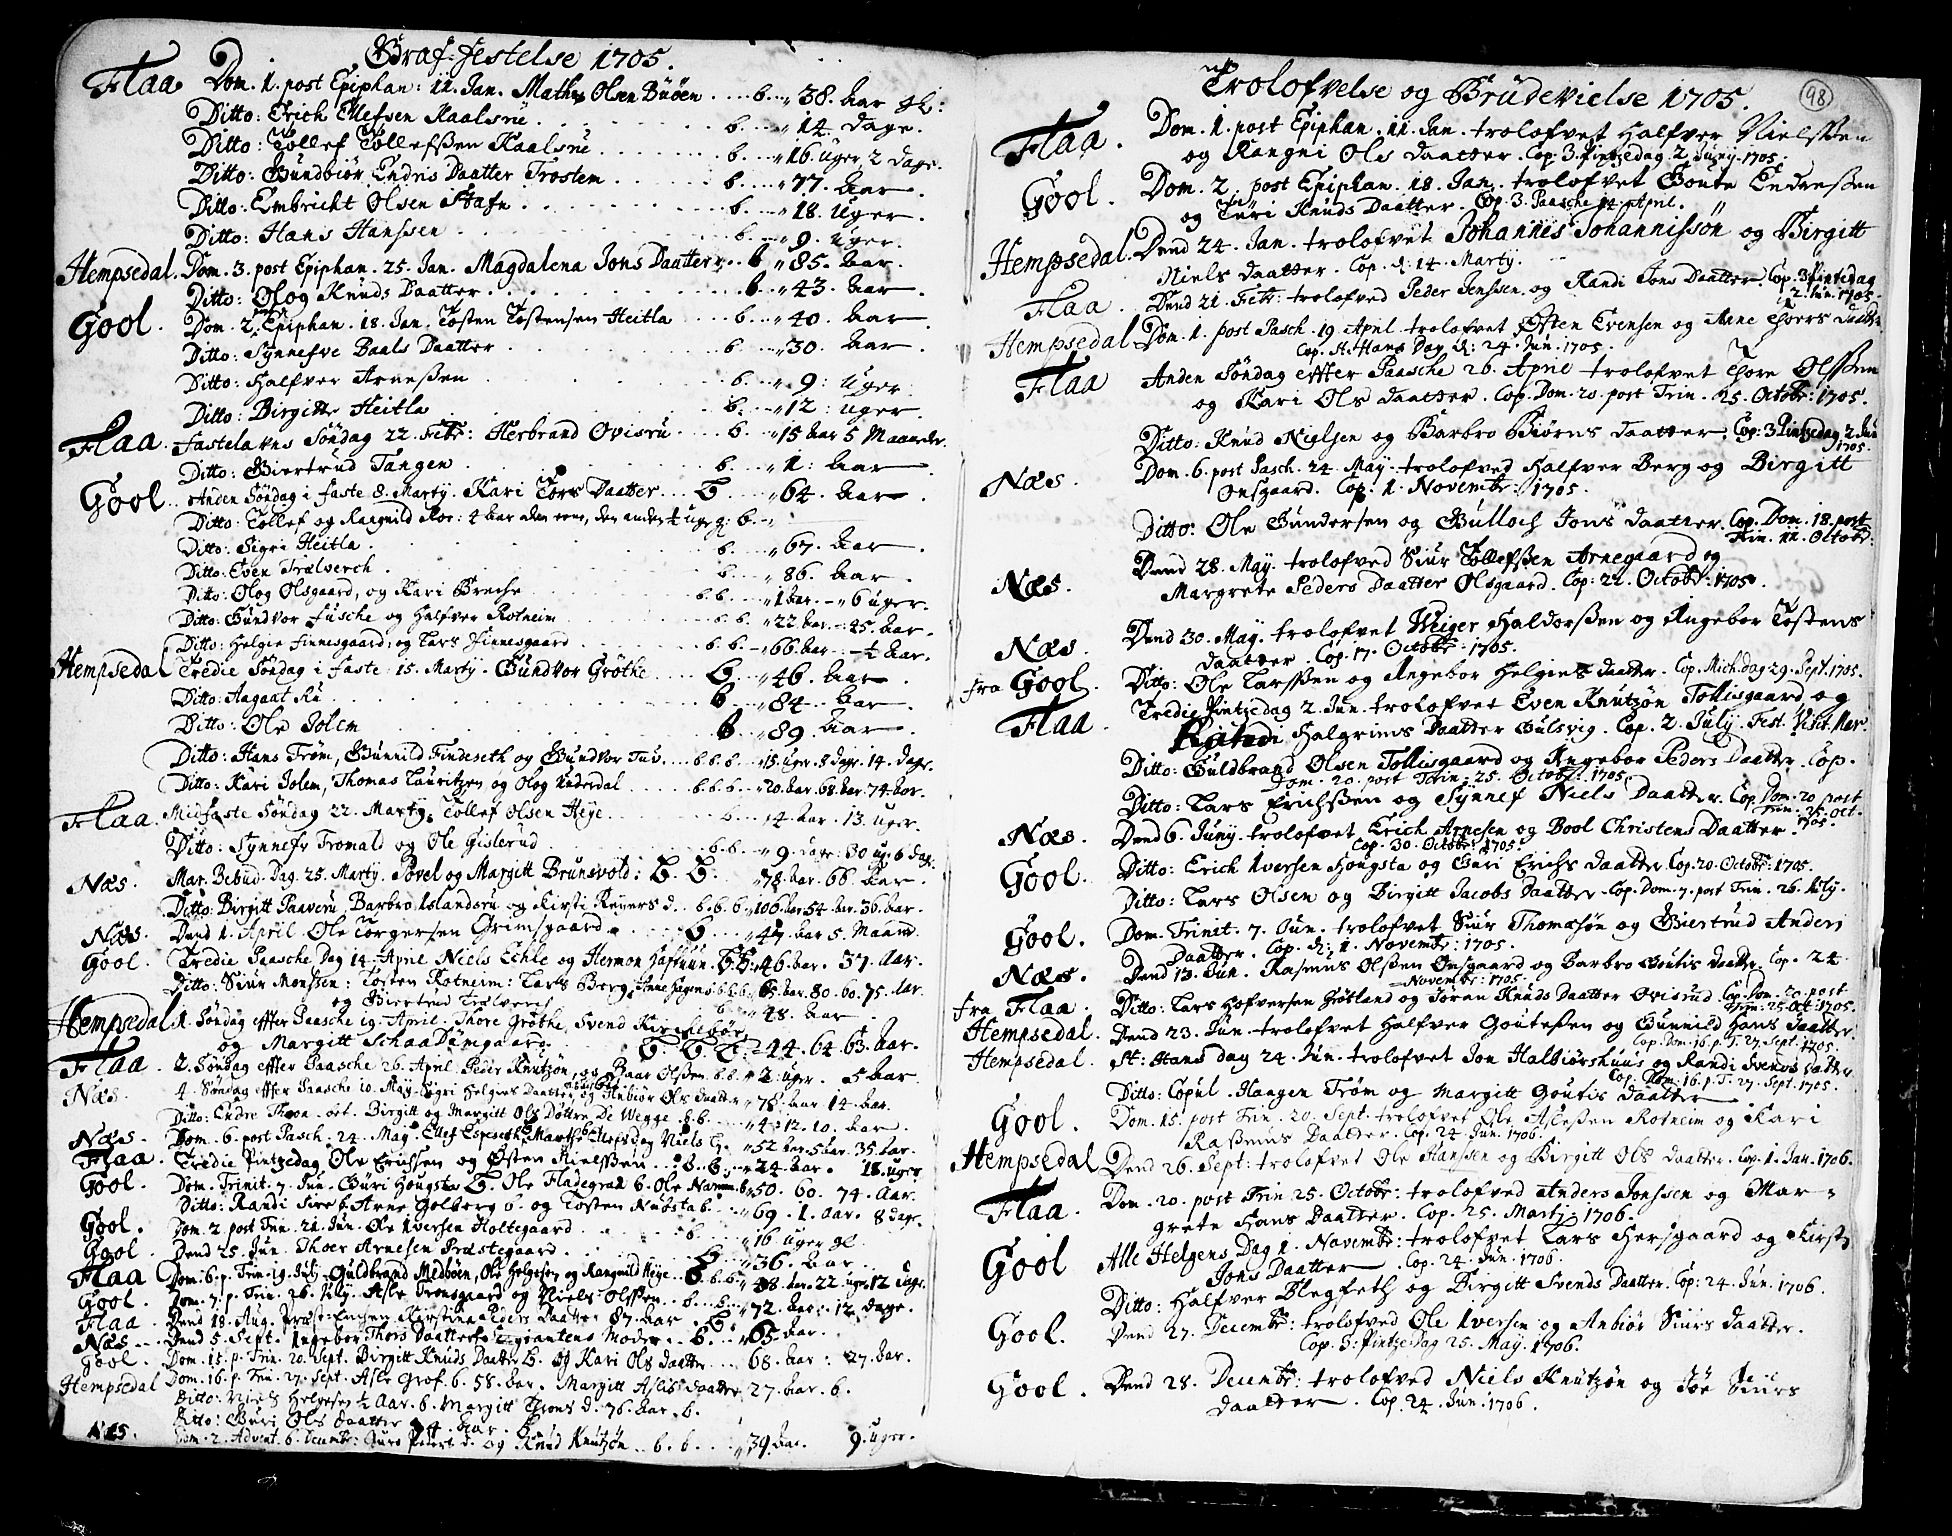 Graf-festelse 1705.
Flaa Dom. 1. post Epiphan: 11. Jan. Mathis Olsen Buöen .... b. .. 38. Aar gl:
Ditto: Erich Ellefsen Kaalsrue .... b. .. 14. dage.
Ditto: Tollef Tollefssen Kaalsrue .... b. .. 16. uger 2 dage.
Ditto: Gundbiör Endris Daatter Trostem .... b. .. 77. Aar.
Ditto: Embricht Olsen Stafn .... b. .. 18. uger.
Ditto: Hans Hanssen .... b. .. 9. uger.
Hempsedal. Dom. 3. post Epiphan. 25. Jan. Magdalena Jons Daatter .. b .. 85. Aar.
Ditto: Olog Knuds Daatter .... b .. 43. Aar.
Gool. Dom. 2. post Epiphan. 18. Jan. Tosten Tostensen Heitla .. b. .. 40. Aar.
Ditto: Synnefve Baals Daatter .... b. .. 30. Aar.
Ditto: Halfver Arnessen .... b. .. 9: uger
Ditto: Birgitte Heitla .... b. .. 12: uger.
Flaa. Fastelavns Söndag 22. Febr: Herbrand Ovisrü .... b. .. 15 Aar 5 Maaneder.
Ditto: Giertrud Tangen .... b. .. 1: Aar
Gool. Anden Söndag i faste 8. Martij. Kari Tors Daatter .. b. .. 64. Aar.
Ditto: Tollef og Raagnild Roe: 4 Aar den eene, den anden ½ uge gl: b. ..
Ditto: Sigri Heitla .... b. .. 67. Aar.
Ditto: Even Trælverch .... b. .. 86. Aar.
Ditto: Olog Olsgaard, og Kari Breche .... b. b. .. 1 Aar. — 6 uger.
Ditto: Gundvor Fusche og Halfver Rotneim .... b. b. .. 22 Aar. — 45. Aar.
Ditto: Helgie Finnesgaard: og Lars Finnesgaard .... b. b. .. 66. Aar. — ½ Aar.
Hempsedal Tredie Söndag i faste 15. Martij. Gundvor Gröthe .... b. .. 46. Aar.
Ditto: Aagaat Rü .... b .. 84. Aar.
Ditto: Ole Solem .... b .. 89. Aar.
Ditto: Hans Tröm, Gunnild Findeseth og Gundvor Tuv ... b. b. b. .. 15. uger. 8 dage. 14. dage.
Ditto: Kari Solem, Thomas Lauritzen og Olog Underdal .... b. b. b. .. 20. Aar. 68. Aar. 74. Aar.
Flaa. Midfaste Söndag 22. Martij. Tollef Olsen Heye .... b. .. 4. Aar. 13. uger.
Ditto: Synnefv Tromald og Ole Gislerud .... b. b. .. 9. dage: 30 ug. 6 dag.
Næs. Mar. Bebud. Dag. 25. Martij. Povel og Margitt Brunsvold: b. b. .. 78. Aar. 66. Aar.
Ditto: Birgitt Paaverü, Barbro Islandsrü og Kirsti Reyers d. .. b. b. b .. 106. Aar 54 Aar. 36. Aar.
Næs. Dend 1. April. Ole Torgersen Grimsgaard .... b .. 47. Aar 5. Maaned.
Gool. Tredie Paasche Dag 14. April Niels Echle og Hermon Jaftuun. b b. 46. Aar. 37. Aar.
Ditto: Siur Monssen: Tosten Rotneim: Lars Berg: b. b. b .. 65 Aar. 80. 60. 75. Aar.
og Giertrud Trælverch .... b .. 48. Aar
Hempsedal 1. Söndag effter Paasche 19. April. Thore Gröthe, Svend Kirchebön
og Margitt SchaaDimgaard .... b. b. b. .. 44. 64. 63. Aar.
Flaa. 2. Söndag effter Paasche 26. April. Peder Knutzön, og Baar Olssen. b. b. .. 2. uger. 5 Aar
Næs. 4. Söndag effter Paasche 10. May. Sigri Helgies Daatter og Anbiör Ols Daatter .. 78: Aar 14. Aar.
Ditto: Endre Birgitt og Margitt Ols Döttre De Wegge. b. b. .. 4. 12. 10. Aar.
Næs. Dom. 6. post Pasch. 24. May. Ellef Espeseth, Marthe Ellefsdaa. Niels .. 52 Aar. 5. Aar. 35. Aar.
Flaa. Tredie Pintzedag Ole Erichssen og Østen Nielssen .. b. b. .. 24. Aar. 18. uger
Gool. Dom. Trinit. 7. Jun. Guri Hougsta b. Ole Fladegrad b. Ole .. 50. 60. 74. Aar.
Ditto: Randi Sire b. Arne Golberg b. og Tosten Nubsta b. .. 69. 1. Aar. 8 dage.
Gool. Dom. 2 post Trin. 21. Jun. Ole Iversen Holtegaard .... b. .. 16 uger gl.
Gool. Dend 25. Jun. Thoer Arnesen Præstegaard .... b. .. 36. Aar.
Flaa Dom. 6. p. Trin. 19. Julij. Guldbrand Medböen, Ole Helgesen og Rangnild Heye .. b. b. b. .. 18. Aar. 22. ug. 12 dage.
Gool. Dom. 7. p. Trin. 26. July. Asle Trongaard og Niels Olssen .. b. b. .. 72. Aar. 12 dage.
Flaa. Dend 18. Aug. Præst-Enchen Kirstina Peders Daatter 87. Aar . b.
Næs Dend 5. Sept. Ingebor Thors Daatter Moder .. b. .. 65 Aar.
Gool. Dom. 15. p. Trin. 20. Sept. Birgitt Knuds Daatter b. og Kari Ols Daatter .. 68. Aar: 27. Aar.
Hempsedal Dom. 16. p. Trin. 27. Sept. Asle Grof. b. 58. Aar. Margitt Aslis Daatter 27. Aar. b.
Ditto: Niels Helgesen ½ Aar. b. Margitt Trons d. 76. Aar. b.
Ditto: Guri Ols Daatter 74 Aar. b.
Næs. Dom. 2. Advent. 6. Decembr: Guro Peders d. og Knud Knutzön .. b. b. .. 39. Aar. 9. uger.
Trolofvelse og Brudevielse 1705.
98
Flaa. Dom. 1. post Epiphan. 11. Jan. trolofvet Halfver Nielssen
og Rangni Ols Daatter. Cop. 3. Pintzedag. 2. Junij. 1705.
Gool. Dom. 2. post Epiphan. 18. Jan. trolofvet Goute Endressen
og Turi Knuds Daatter. Cop. 3. Paasche 14. April.
Hempsedal. Dend 24. Jan. trolofvet Johannis Johannissön og Birgitt
Niels daatter. Cop. d: 14. Martij.
Flaa. Dend 21. Febr: trolofved Peder Jenssen og Randi Jons Daatter. Cop. 3 Pintzedag
2. Jun. 1705.
Hempsedal Dom. 1. post Pasch. 19. April trolofvet Østen Evensen og Anne Thoers Daatter
Cop. St. Hans Dag d: 24. Jun. 1705.
Flaa Anden Söndag effter Paasche 26. April trolofvet Thore Olssen
og Kari Ols daatter. Cop. Dom. 20. post Trin. 25. Octobr: 1705.
Ditto: Knud Nielsen og Barbro Biörns daatter. Cop: 3 Pintzedag 2. Jun
1705.
Næs. Dom. 6. post Pasch. 24. May. trolofved Halfver Berg og Birgitt
Onsgaard. Cop. 1. Novembr: 1705.
Ditto: Ole Gundersen og Gulloch Jons daatter. Cop. Dom. 18. post
Trin. 11. Octobr:
Næs. Dend 28. May. trolofved Siur Tollefssen Arnegaard og
Margrete Peders Daatter Olsgaard. Cop: 22. Octobr: 1705.
Næs. Dend 30. May. trolofvet Weiger Haldorssen og Angebor Tostens
daatter. Cop. 17. Octobr: 1705.
fra Gool. Ditto: Ole Larssen og Angebor Helgies daatter. Cop. Mich. dag 29. Sept. 1705.
Flaa Tredie Pintzedag 2. Jun. trolofvet Even Knutzön Tollisgaard og
Halgrims Daatter Gulsvig. Cop. 2. July. Fest. Visit. Mar.
Ditto: Guldbrand Olsen Tollisgaard og Angebor Peders Daatter. Cop.
Dom. 20. post Trin: 25. Octobr: 1705.
Ditto: Lars Erichssen og Synnef Niels Daatter. Cop. Dom. 20 post
Trin. 25. Oct.
1705.
Næs. Dend 6. Junij. trolofvet Erich Arnesen og Bool Christens Daatter.
Cop. 30. Octobr: 1705.
Gool. Ditto: Erich Iversen Hougsta og Guri Erichs daatter. Cop. 20. Octobr: 1705.
Ditto: Lars Olsen og Birgitt Jacobs Daatter. Cop. Dom. 7. post Trin. 26. July.
Gool. Dom. Trinit. 7. Jun. trolofvet Siur Thomasön og Giertrud Anders
Daatter. Cop. d: 1. Novembr: 1705.
Næs. Dend 13. Jun. Rasmus Olssen Onsgaard og Barbro Goutis daatter. Cop. 24.
Novembr: 1705.
fra Flaa. Ditto: Lars Hofversen Grötland og Söran Knuds Daatter Ovisrud Cop. Dom. 20. post
Trin. 25. Oct. 1705.
Hempsedal. Dend 23. Jun. trolofvet Halfver Goutessen og Gunnild Hans daatter.
Cop. Dom. 16. p. T. 27. Sept. 1705.
Hempsedal. St: Hans dag 24. Jun. trolofvet Jon Halbiörshuus og Randi Svends Datter
Cop. Dom. 16. p. T. 27. Sept. 1705.
Ditto: Copul. Haagen Tröm og Margitt Goutis daatter
Gool. Dom. 15. post Trin. 20. Sept. trolofvet Ole Aslessen Rotneim og Kari
Rasmus Daatter. Cop. 24. Jun. 1706.
Hempsedal Dend 26. Sept: trolofvet Ole Hanssen og Birgitt Ols daatter. Cop. 1. Jan. 1706.
Flaa. Dom. 20. post Trin 25. Octobr: trolofved Anders Jonssen og Mar-
grete Hans Daatter. Cop. 25. Martij. 1706.
Gool Alle Helgens Dag 1. Novembr: trolofvet Lars Hersgaard og Kirsti
Jons Daatter. Cop. 24. Jun. 1706.
Ditto: Halfver Blegfeth og Birgitt Svends Daatter. Cop: 24. Jun. 1706.
Gool. Dend 27. Decembr: trolofved Ole Iversen og Anbiör Siurs daatter.
Cop. 3: PintzeDag 25. May. 1706.
Gool. Dend 28. Decembr: trolofved Niels Knutzön og Siurs
daatter. Cop. 24. Jun. 1706.